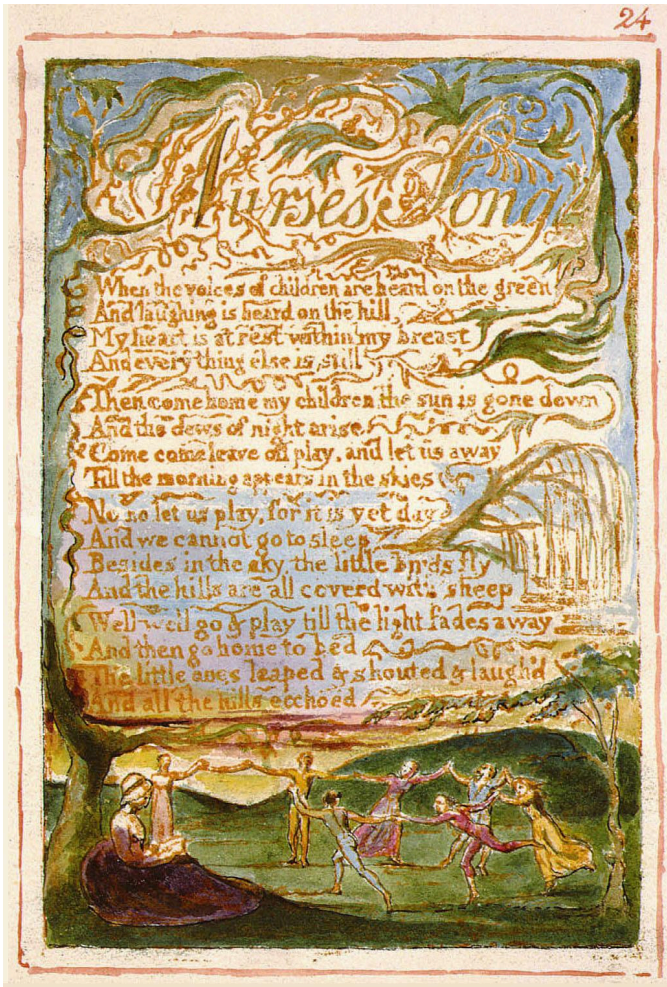 24
Nurses Song
When the voices of children are heard on the green
And laughing is heard on the hill,
My heart is at rest within my breast
And every thing else is still
Then come home my children the sun is gone down
And the dews of night arise
Come come leave off play, and let us away
Till the morning appears in the skies
No no let us play, for it is yet day
And we cannot go to sleep
Besides in the sky, the little birds fly
And the hills are all coverd with sheep
Well well go & play till the light fades away
And then go home to bed
The little ones leaped & shouted & laugh'd
And all the hills ecchoed